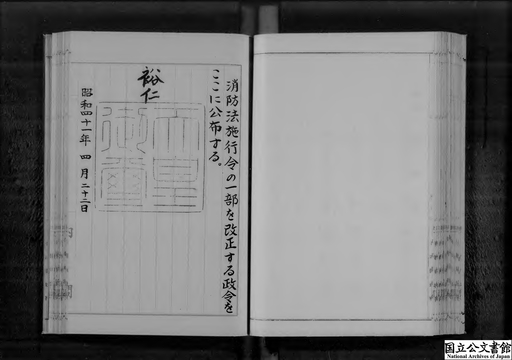 消防法施行令の一部を改正する政令を
ここに公布する。
裕仁
天皇
御璽
昭和四十一年四月二十二日
国立公文書館
National Archives of Japan